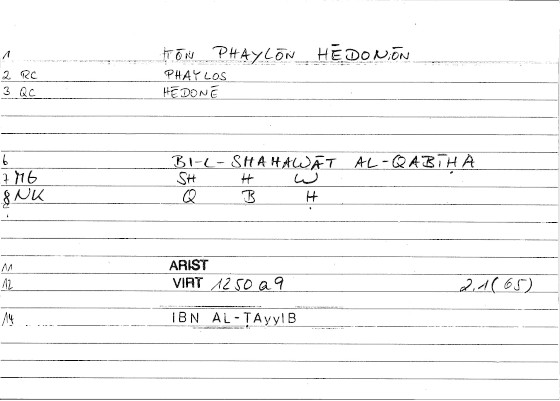 1 TŌN PHAYLŌN HĒDONŌN
2 RC PHAYLOS
3 QC HĒDONĒ
6 BI-L-SHAHAWĀT AL-QABĪḤA
7 MG SH H W
8 NK Q B Ḥ
11 ARIST
12 VIRT 1250 a 9 2.1(65)
14 IBN AL-ṬAyyIB